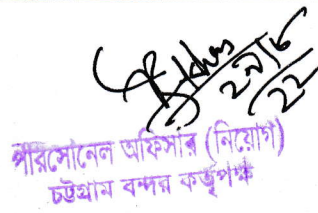 ২৯/৮/২২
পারসোনেল অফিসার (নিয়োগ)
চট্টগ্রাম বন্দর কর্তৃপক্ষ